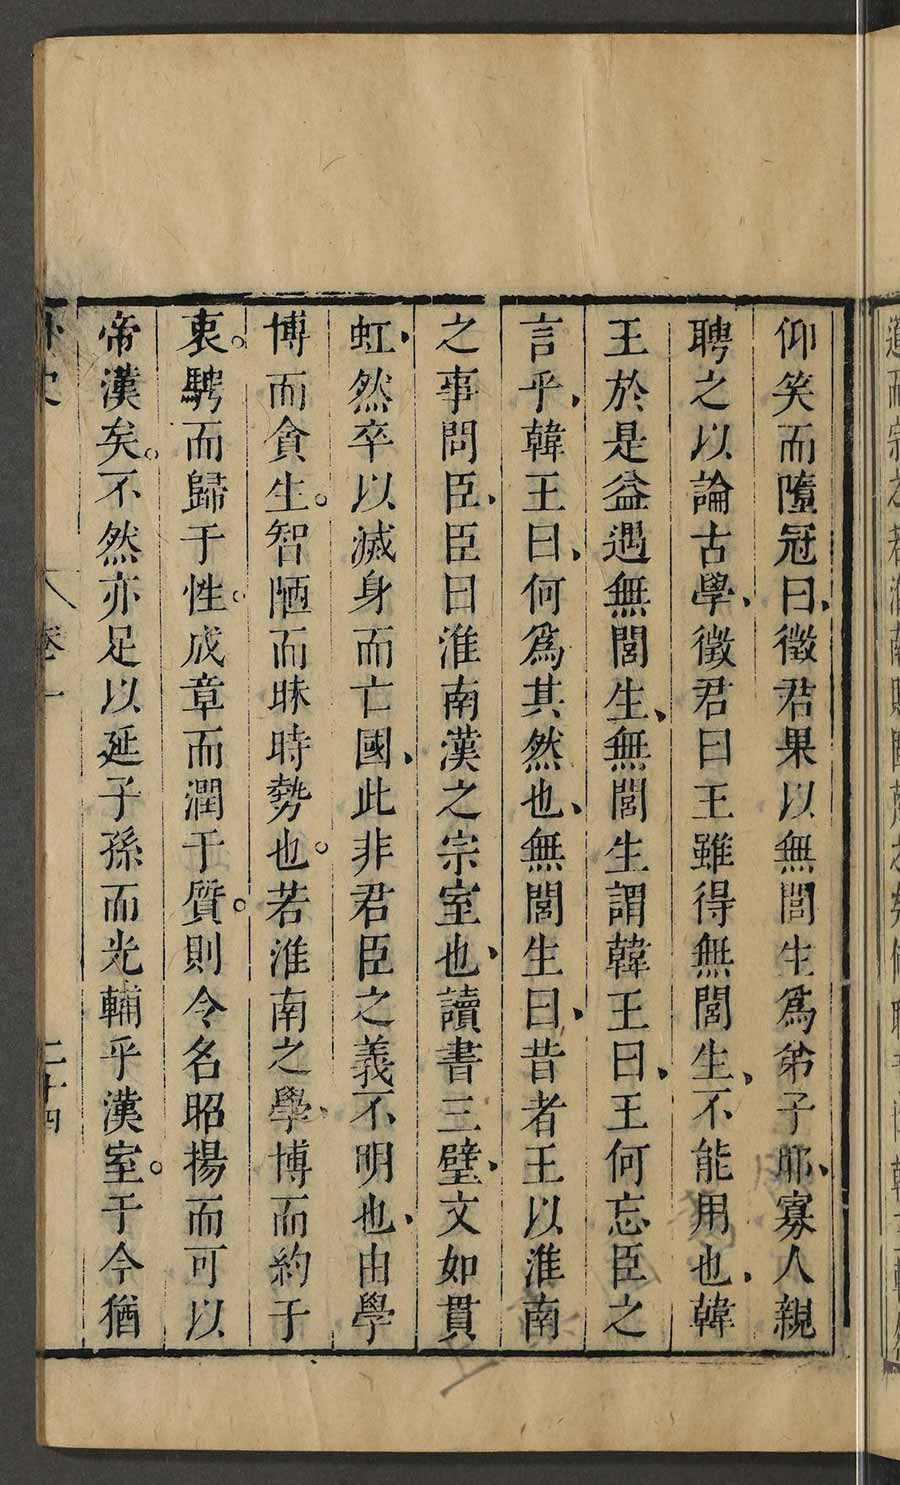 仰笑而墮冠曰、徵君果以無閭生爲弟子耶、寡人親
聘之以論古學、徵君曰王雖得無閭生、不能用也、韓
王於是益遇無閭生、無閭生謂韓王曰、王何忘臣之
言乎、韓王曰、何爲其然也、無閭生曰、昔者王以淮南
之事問臣、臣曰淮南漢之宗室也、讀書三壁、文如貫
虹、然卒以滅身而亡國、此非君臣之義不明也、由學
博而貪生。智陋而昧時勢也。若淮南之學、博而約于
衷。騁而歸于性。成章而潤于質。則令名昭揚而可以
帝漢矣。不然亦足以延子孫而光輔乎漢室。于今猶
外史 卷一 二十四